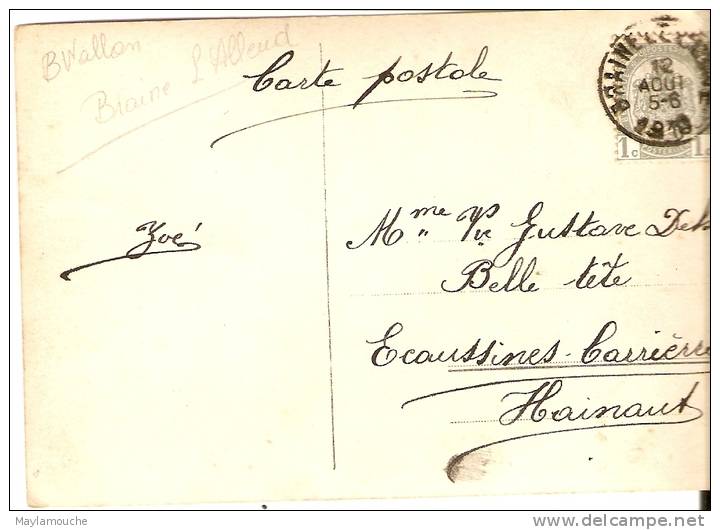 B Wallon
Braine L'Alleud
Carte postale
12
AOUT
5-6
1c 1c
Zoé
Mme Vve Gustave
Belle tête
Ecaussines-Carrière
Hainaut
Maylamouche
www.delcampe.net